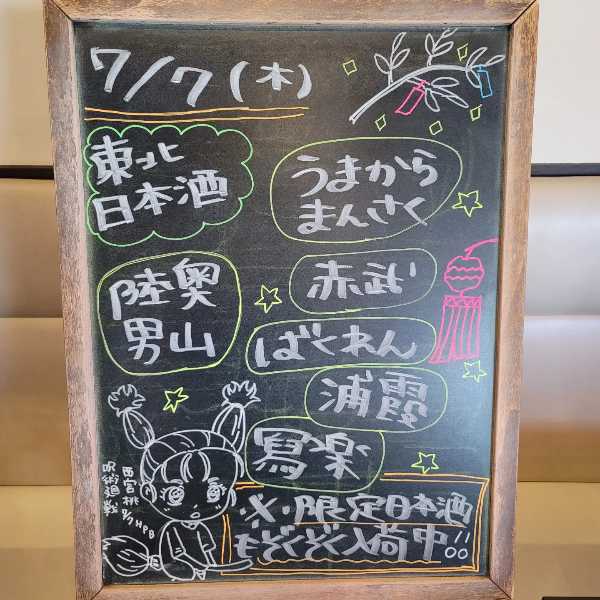 7/7(木)
東北
日本酒
うまから
まんさく
陸奥
男山
赤武
ばくれん
浦霞
寫楽
・※・限定日本酒
もぞくぞく入荷中!!
西宮桃
8/7 HPB
呪術廻戦